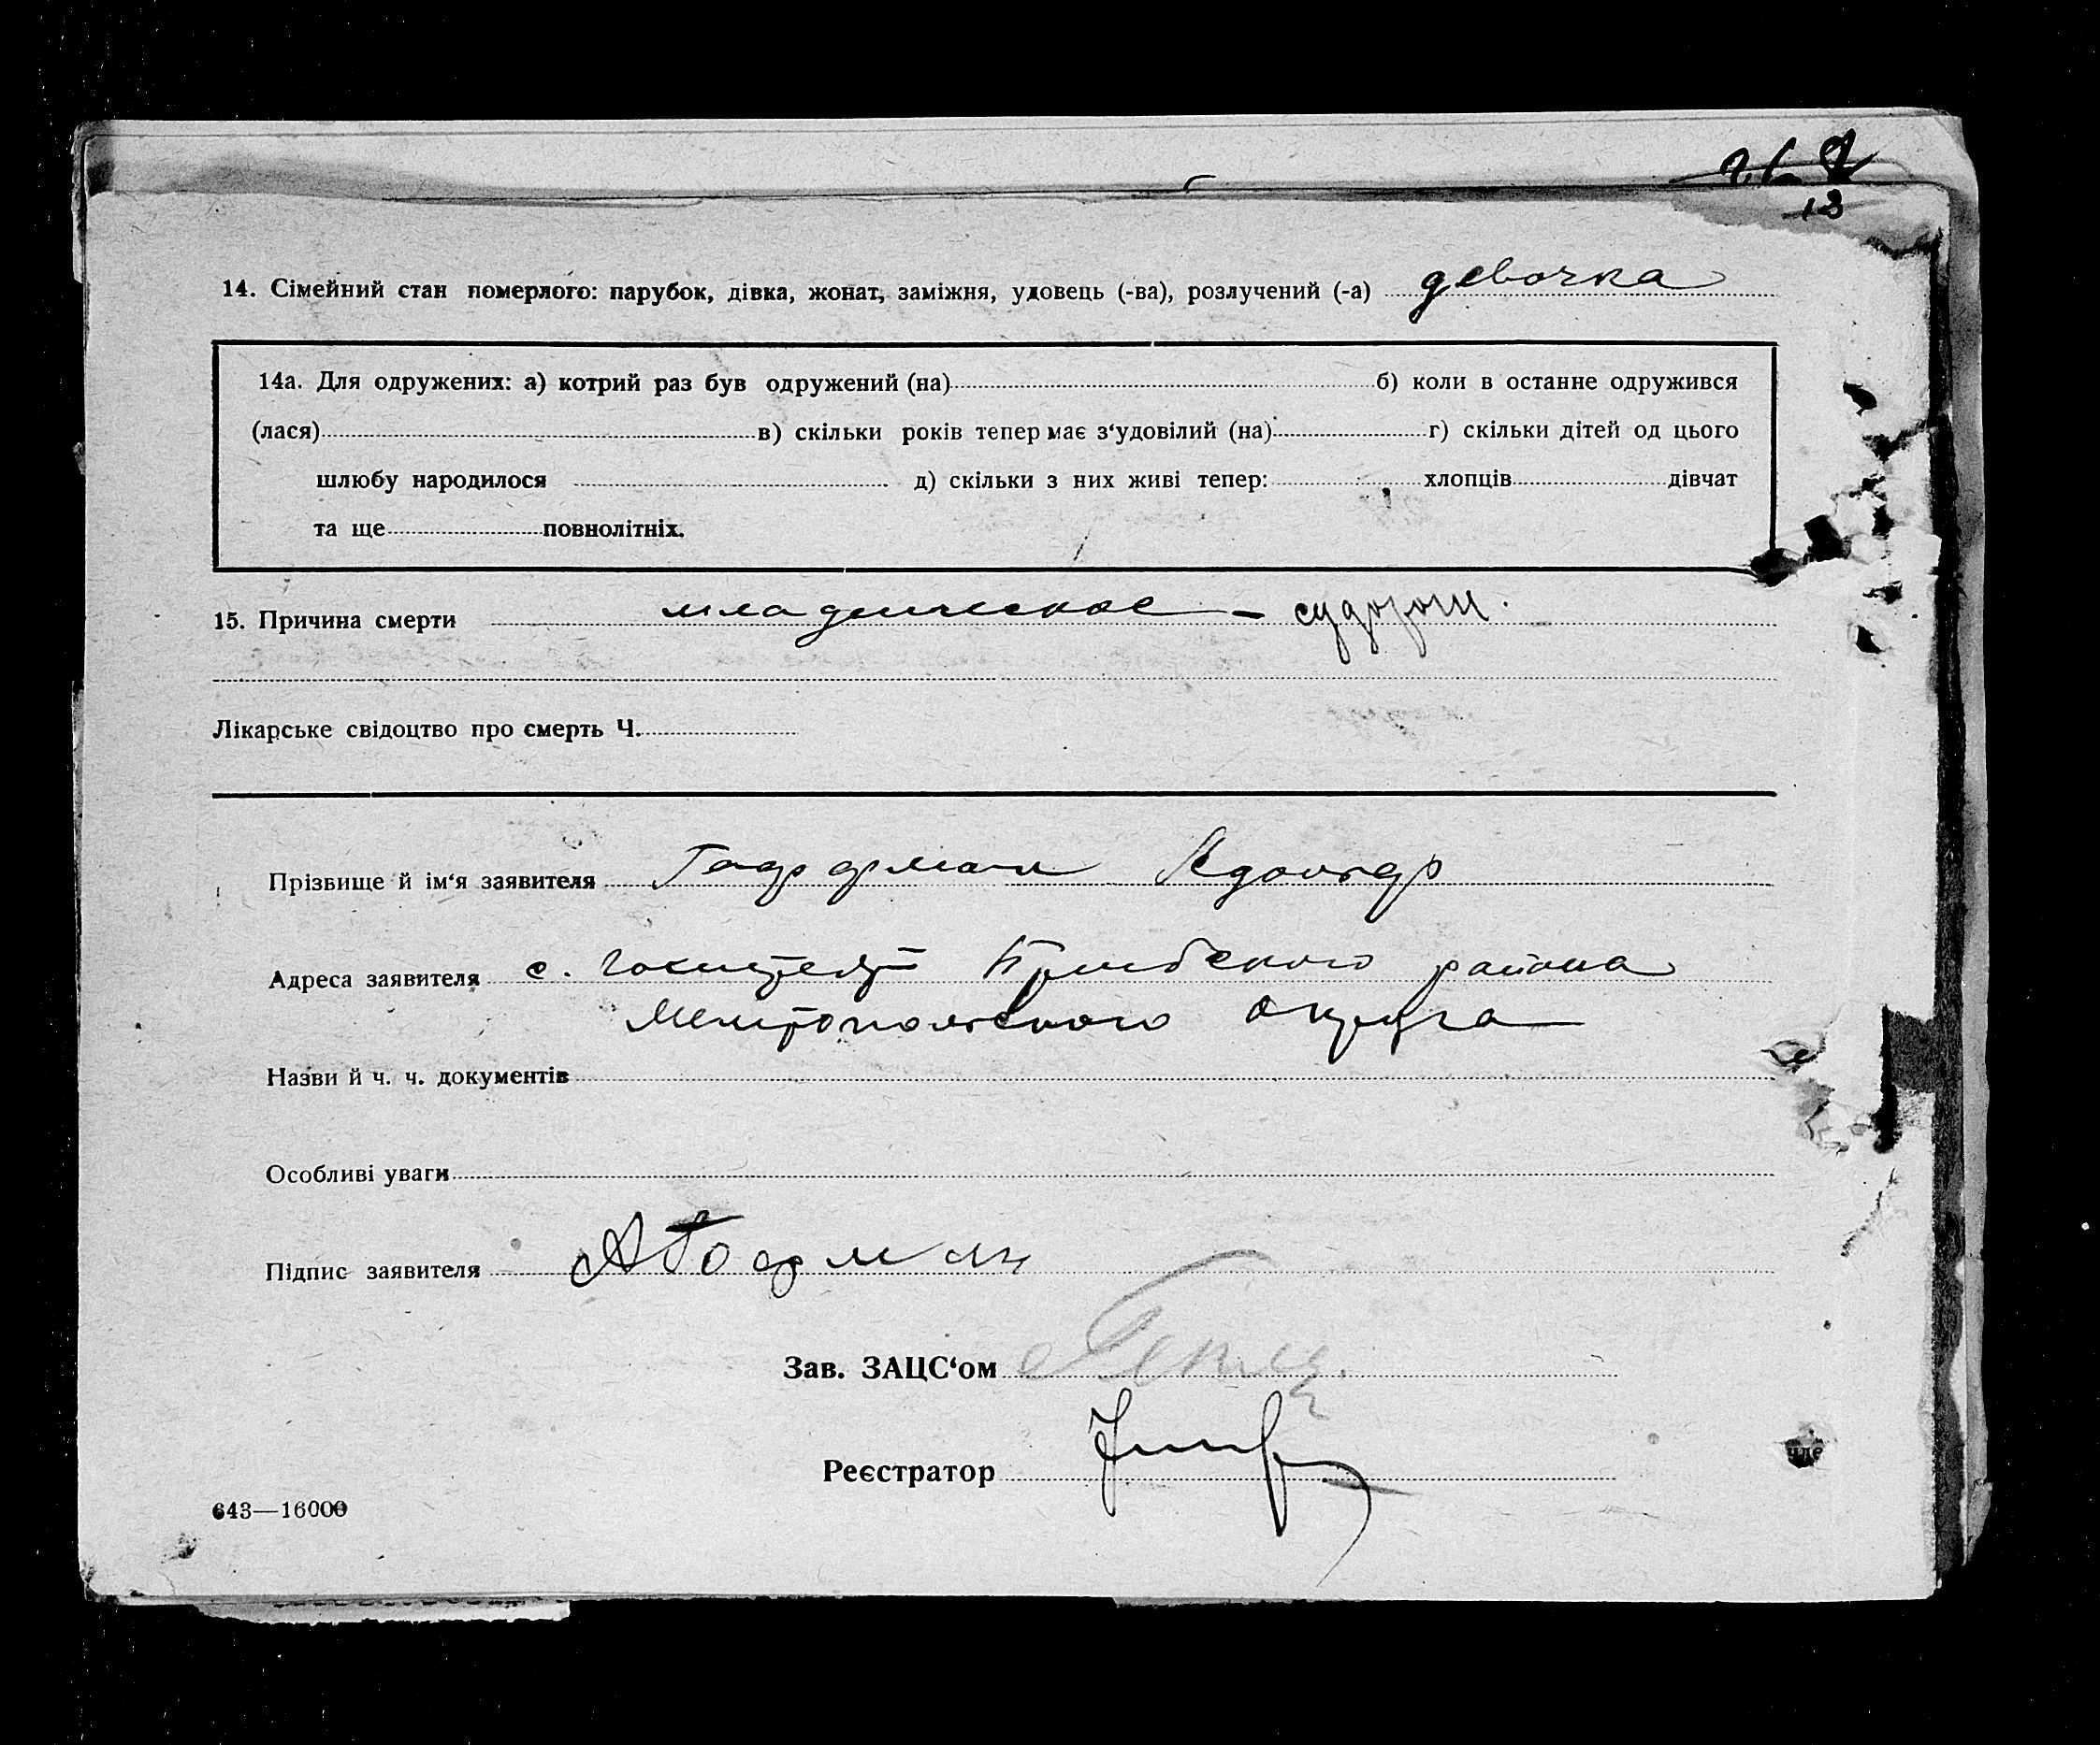 13
14. Сімейний стан померлого: парубок, дівка, жонат, заміжня, удовець (-ва), розлучений (-а) девочка
14а. Для одружених: а) котрий раз був одружений (на) б) коли в останне одружився
(лася) в) скільки років тепер має з‘удовілий (на) г) скільки дітей од цього
шлюбу народилося д) скільки з них живі тепер: хлопців дівчат
та ще повнолітніх.
15. Причина смерти младенческое - судороги.
Лікарське свідоцтво про смерть Ч.
Прізвище й ім‘я заявителя
Адреса заявителя с. района
Мелитопольского округа
Назви й ч. ч. документів
Особливі уваги
Підпис заявителя
Зав. ЗАЦС‘ом
Реєстратор
643—16000